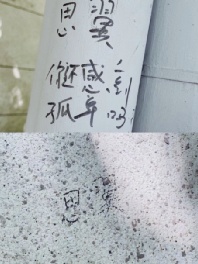 思翼
你还感到
孤单吗
思